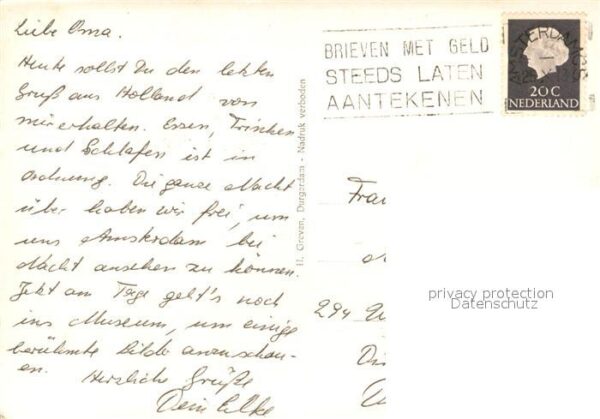 Liebe Oma.
Heute sollst Du den letzten
Gruß aus Holland von
mir erhalten. Essen, Trinken
und Schlafen ist in
Ordnung. Die ganze Nacht
über haben wir frei, um
uns Amsterdam bei
Nacht ansehen zu können.
Jetzt am Tage geht's noch
ins Museum, um einige
berühmte Bilder anzuschau-
en.
Herzliche Grüße
Dein Elke
H. Greven, Durgerdam - Nadruk verboden
BRIEVEN MET GELD
STEEDS LATEN
AANTEKENEN
AMSTERDAM
20 C
NEDERLAND
Frau
294
privacy protection
Datenschutz